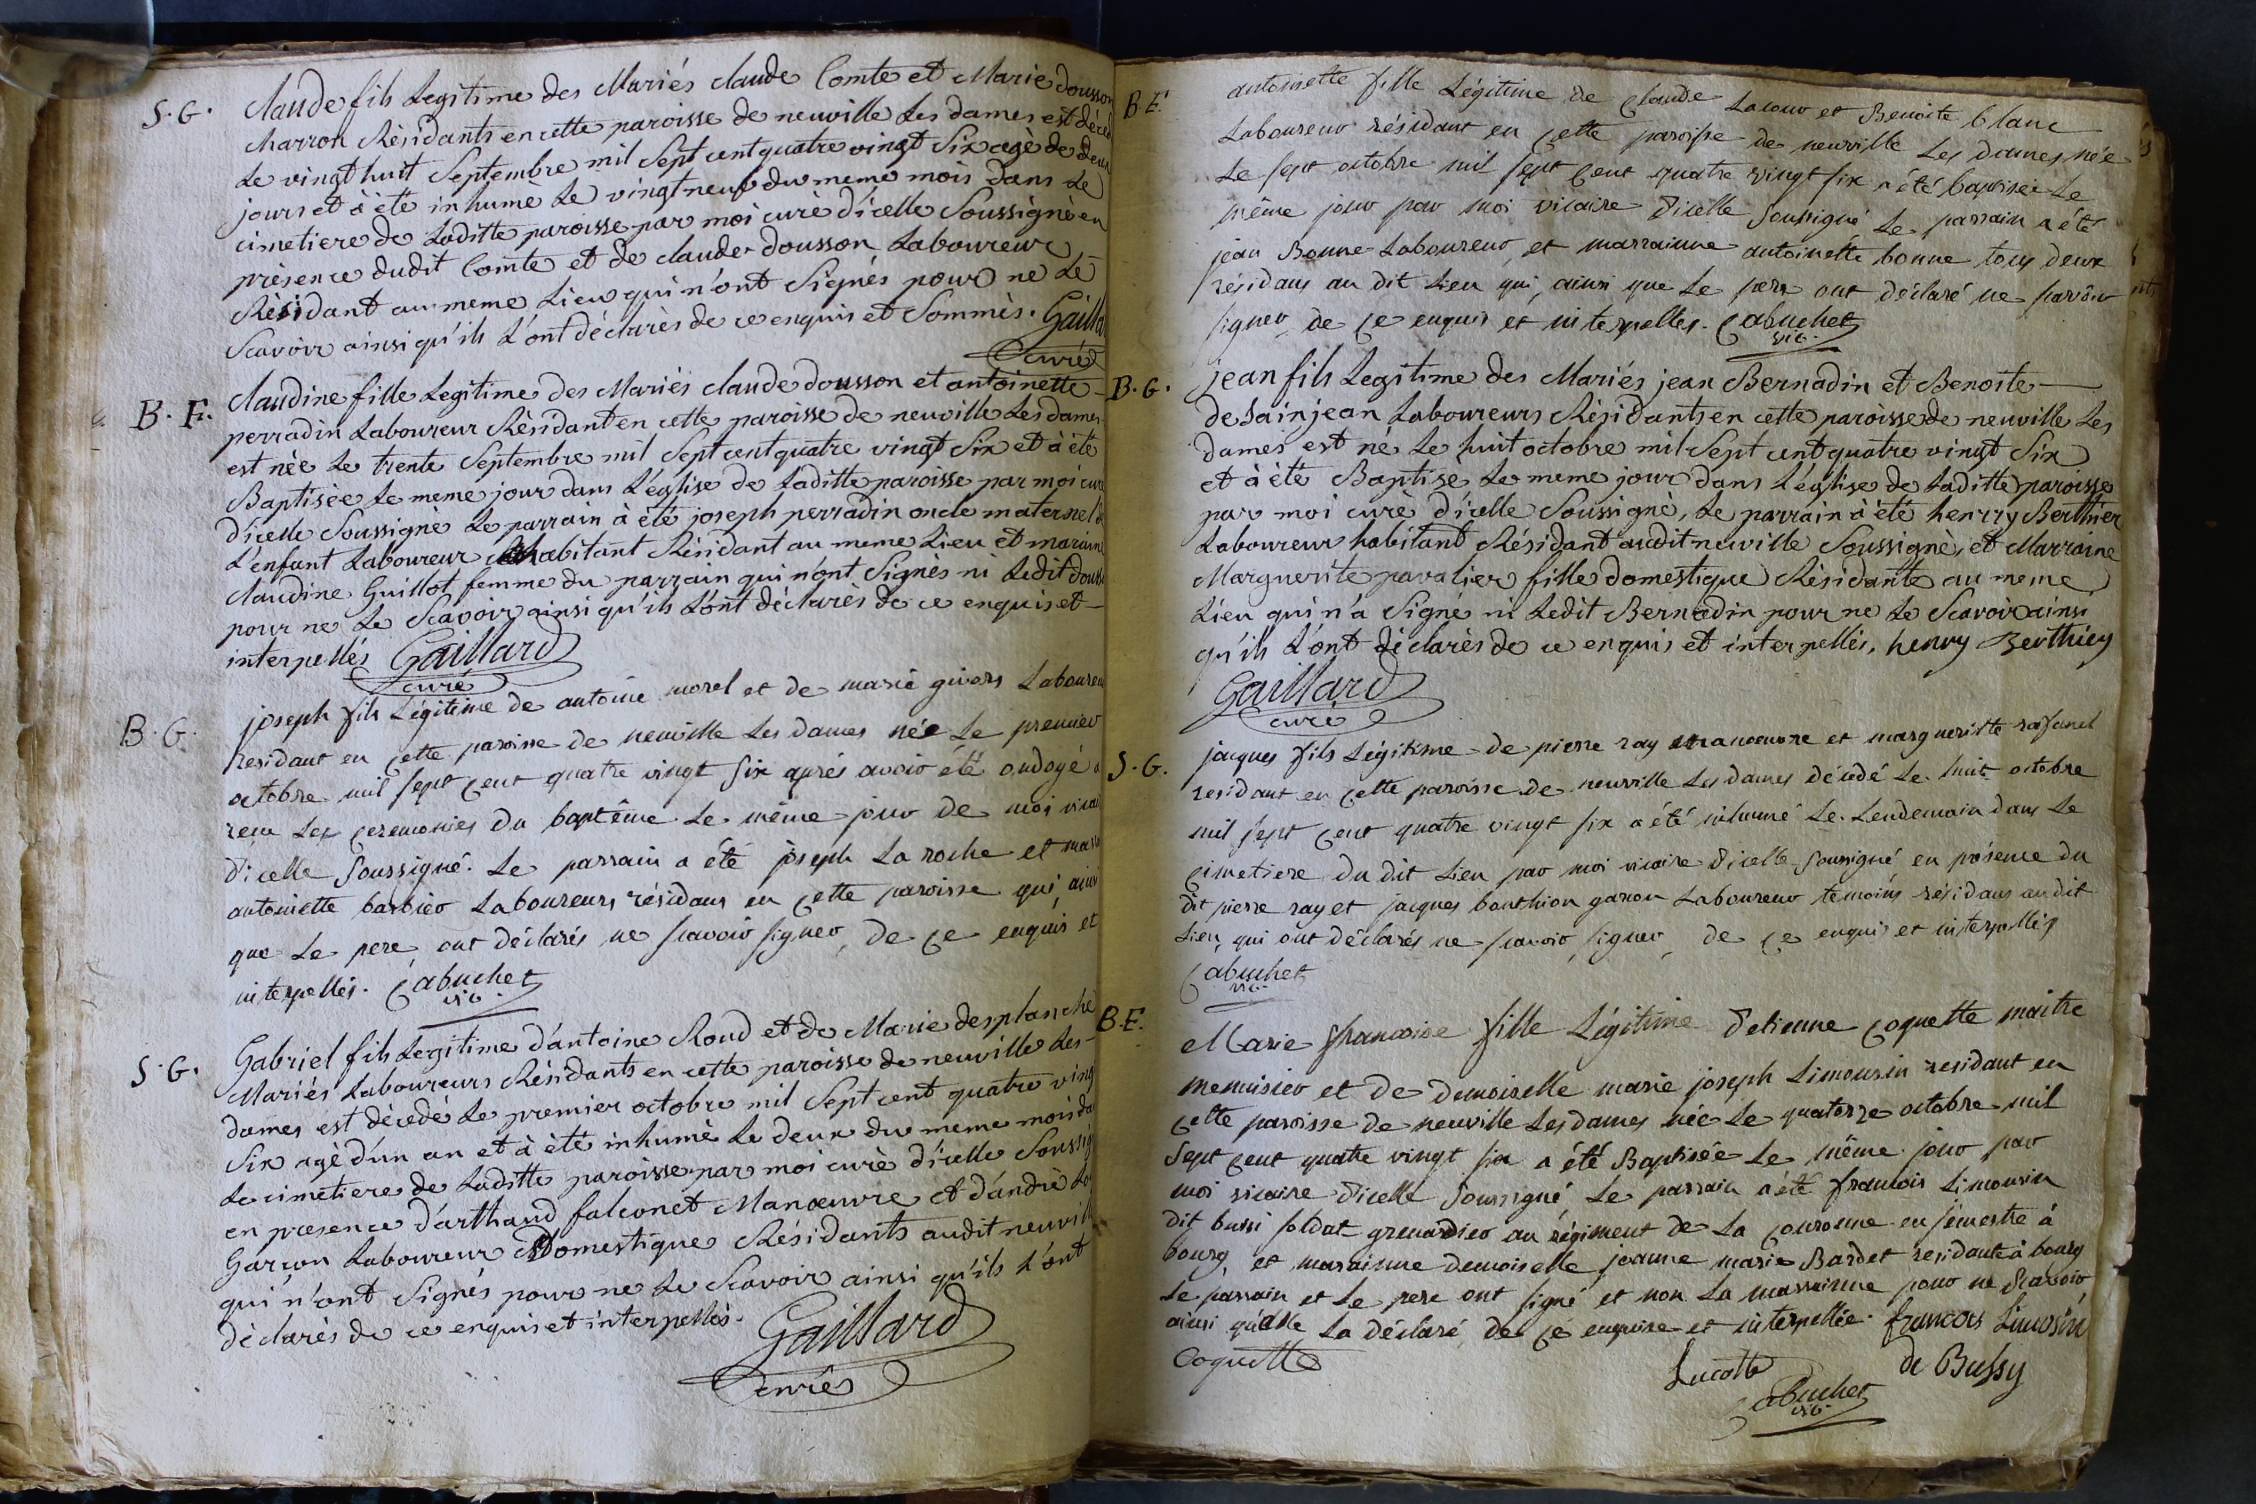 S. G. Claude fils Legitime des Mariés claude Comte et Marie dousson
charron Résidants en cette paroisse de neuville Les dames est décéd
Le vingt huit Septembre mil Sept cent quatre vingt Six agè de deux
jours et à ète inhumè Le vingt neuf du meme mois dans Le
cimetiere de Laditte paroisse par moi curè d'icelle Soussignè en
présence dudit Comte et de claude dousson Laboureur
Résidant au meme Lieu qui n'ont Signés pour ne Le
Scavoir ainsi qu'ils L'ont déclarès de ce enquis et Sommès. Gaillar
curé
B. F. Claudine fille Legitime des Mariés claude dousson et antoinette
perradin Laboureur Résidant en cette paroisse de neuville Les dames
est née Le trente Septembre mil Sept cent quatre vingt Six et à été
Baptisèe Le meme jour dans L'église de Laditte paroisse par moi curé
d'icelle Soussignè Le parrain à ètè joseph perradin oncle maternel de
L'enfant Laboureur habitant Résidant au meme Lieu et maraine
claudine Guillot femme du parrain qui n'ont Signès ni Ledit douss
pour ne Le Scavoir ainsi qu'ils L'ont déclarès de ce enquis et
interpellés Gaillard
curé
B. G. joseph fils Légitime de antoine morel et de marie givors Laboureu
residant en cette paroisse de neuville Les dames née Le premier
octobre mil sept cent quatre vingt six aprés avoir été ondoyé a
reçu Les ceremonies du baptême Le même jour de moi vicai
d'icelle soussigné. Le parrain a été joseph La roche et marr
antoinette barbier Laboureurs résidans en cette paroisse qui, ainsi
que Le pere, ont déclarés ne scavoir signer, de ce enquis et
interpellés. Cabuchet
vic.
S. G. Gabriel fils Legitime d'antoine Roud et de Marie desplanche
Mariés Laboureurs Résidants en cette paroisse de neuville Les
dames est décédé Le premier octobre mil Sept cent quatre ving
Six agé d'un an et à étè inhumè Le deux du meme mois da
Le cimetiere de Laditte paroisse par moi curè d'icelle Soussig
en presence d'arthaud falconet Manœuvre et d'andrè
Garçon Laboureur Domestique Résidants audit neuvill
qui n'ont Signés pour ne Le Scavoir ainsi qu'ils L'ont
déclarès de ce enquis et interpellés. Gaillard
curé
B F. antoinette fille Légitime de Claude Lacour et Benoite blanc
Laboureur résidant en cette paroisse de neuville Les dames née
Le sept octobre mil sept cent quatre vingt six a été baptisée Le
même jour par moi vicaire d'icelle soussigné Le parrain a été
jean Bonne Laboureur, et marrainne antoinette bonne tous deux
résidans au dit Lieu qui, ainsi que Le pere ont déclaré ne savoir
signer, de ce enquis et interpellés. Cabuchet
vic.
B. G. jean fils Legitime des Mariés jean Bernadin et Benoite
de Sainjean Laboureurs Résidants en cette paroisse de neuville Les
dames est ne Le huit octobre mil Sept cent quatre vingt Six
et à été Baptisé Le meme jour dans L'église de Laditte paroisse
par moi curè d'icelle Soussignè, Le parrain à étè henrry Berthier
Laboureur habitant Résidant audit neuville Soussignè, et Marraine
Marguerite pavalier fille domestique Résidante au meme
Lieu qui n'a Signé ni Ledit Bernadin pour ne Le Scavoir ainsi
qu'ils L'ont déclarès de ce enquis et interpellés, henry Berthier
Gaillard
curé
S. G. jacques fils Légitime de pierre ray manoeuvre et margueritte rafanel
residant en cette paroisse de neuville Les dames décédé Le huit octobre
mil sept cent quatre vingt six a été inhumé Le Lendemain dans Le
cimetiere du dit Lieu par moi vicaire d'icelle soussigné en présence du
dit pierre ray et jacques bouthion garçon Laboureur temoins résidans audit
Lieu, qui ont déclarés ne scavoir signer, de ce enquis et interpellés
Cabuchet
vic.
B. F. Marie francoise fille Légitime d'etienne coquette maitre
menuisier et de demoiselle marie joseph Limousin residant en
cette paroisse de neuville Les dames née Le quatorze octobre mil
Sept cent quatre vingt six a été Baptisée Le même jour par
moi vicaire d'icelle soussigné Le parrain a été francois Limousin
dit bussi soldat grenardier au régiment de La couronne en semestre à
bourg et marainne demoiselle jeanne marie Bardet residante à bourg
Le parrain et Le pere ont signé et non La marrainne pour ne Scavoir
ainsi qu'elle La déclaré de ce enquise et interpellée. francois Limosin
Coquette Lucotte de Bussy
Cabuchet
vic.